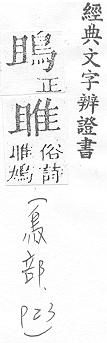 經典文字辨證書
鴡正
雎俗詩
雎鳩
(鳥部, P23)